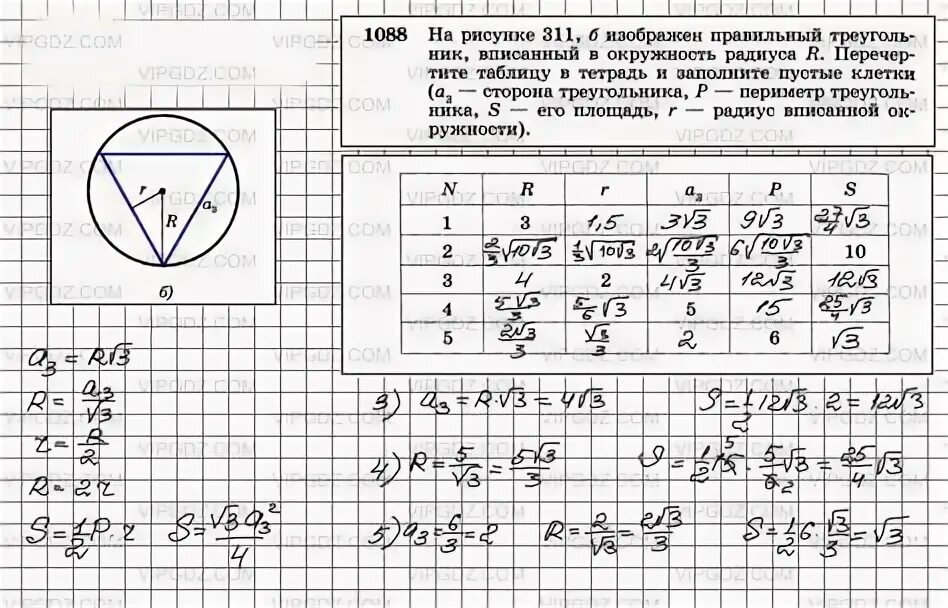 1088 На рисунке 311, б изображен правильный треуголь-
ник, вписанный в окружность радиуса R. Перечер-
тите таблицу в тетрадь и заполните пустые клетки
(a₃ — сторона треугольника, P — периметр треуголь-
ника, S — его площадь, r — радиус вписанной ок-
ружности).
r
R
a₃
б)
N R r a₃ P S
1 3 1,5 3√3 9√3 27/4 √3
2 2/3 √(10√3) 1/3 √(10√3) 2√(10√3/3) 6√(10√3/3) 10
3 4 2 4√3 12√3 12√3
4 5√3/3 5/6 √3 5 15 25/4 √3
5 2√3/3 √3/3 2 6 √3
a₃ = R√3
R = a₃/√3
r = R/2
R = 2r
S = 1/2 P·r S = √3 a₃²/4
3) a₃ = R·√3 = 4√3 S = 1/2 12√3 · 2 = 12√3
4) R = 5/√3 = 5√3/3 S = 1/2 15 · 5/6 √3 = 25/4 √3
5) a₃ = 6/3 = 2 R = 2/√3 = 2√3/3 S = 1/2 6 · √3/3 = √3
VIPGDZ.COM